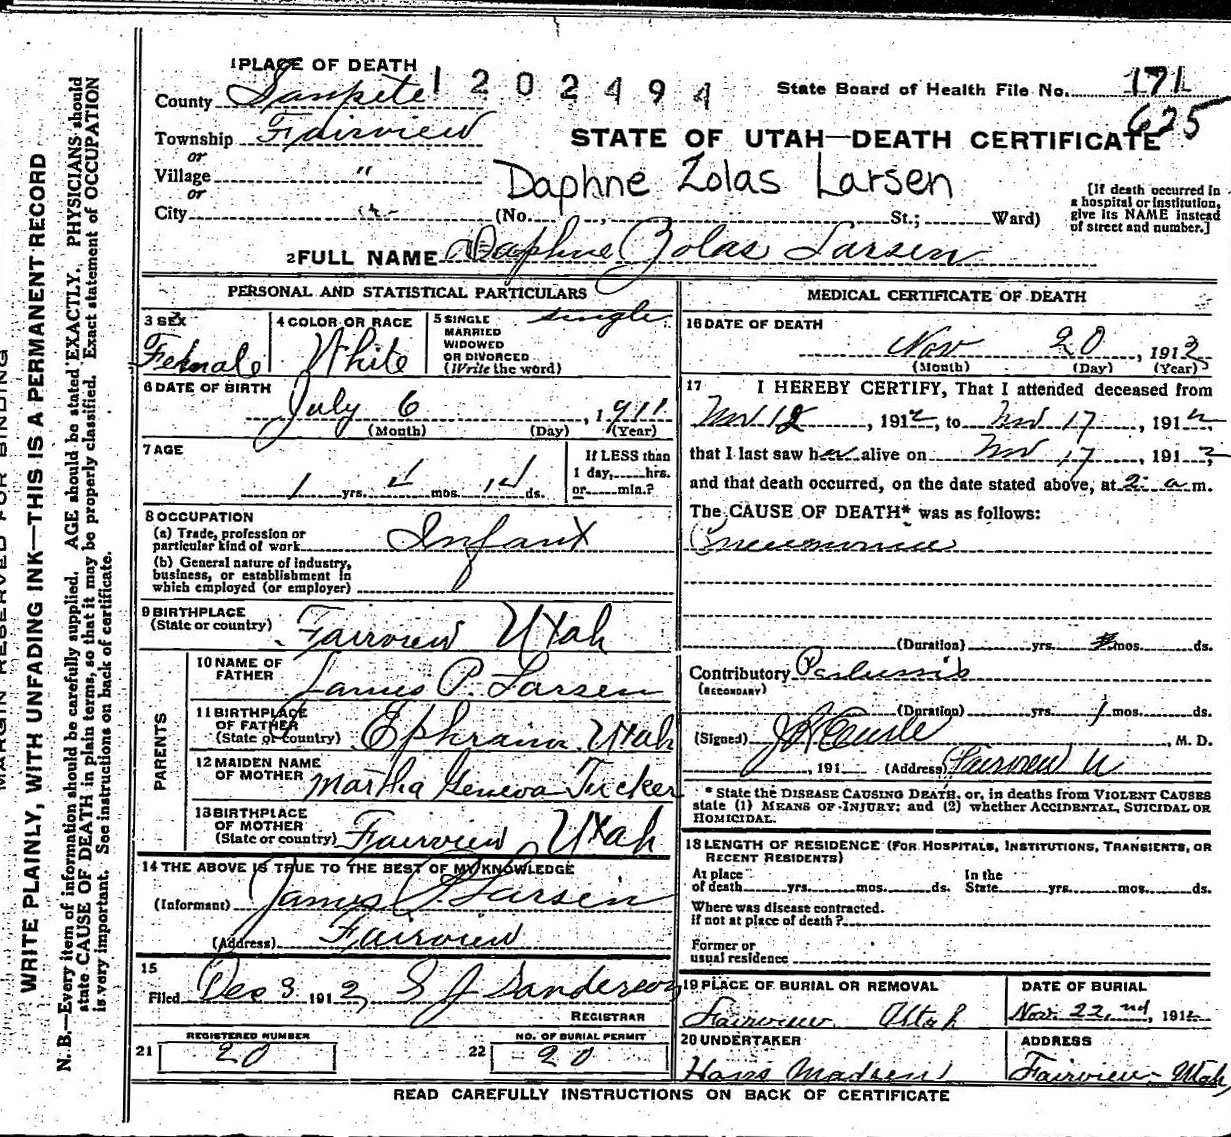 1 PLACE OF DEATH
1 2 0 2 4 9 4
State Board of Health File No. 171
625
County Sanpete
Township Fairview
or
Village "
or
City
STATE OF UTAH—DEATH CERTIFICATE
Daphne Zolas Larsen
(No. St.; Ward)
[If death occurred in
a hospital or institution,
give its NAME instead
of street and number.]
2 FULL NAME Daphne Zolas Larsen
PERSONAL AND STATISTICAL PARTICULARS
3 SEX
Female
4 COLOR OR RACE
White
5 SINGLE
MARRIED
WIDOWED
OR DIVORCED
(Write the word)
single
6 DATE OF BIRTH
July 6, 1911
(Month) (Day) (Year)
7 AGE
1 yrs. 4 mos. 14 ds.
If LESS than
1 day, hrs.
or min.?
8 OCCUPATION
(a) Trade, profession or
particular kind of work Infant
(b) General nature of industry,
business, or establishment in
which employed (or employer)
9 BIRTHPLACE
(State or country) Fairview Utah
PARENTS
10 NAME OF
FATHER James P. Larsen
11 BIRTHPLACE
OF FATHER
(State or country) Ephraim Utah
12 MAIDEN NAME
OF MOTHER Martha Geneva Tucker
13 BIRTHPLACE
OF MOTHER
(State or country) Fairview Utah
14 THE ABOVE IS TRUE TO THE BEST OF MY KNOWLEDGE
(Informant) James P. Larsen
(Address) Fairview
15
Filed Dec 3 1912, S J Sanderson
REGISTRAR
REGISTERED NUMBER
21 20
NO. OF BURIAL PERMIT
22 20
MEDICAL CERTIFICATE OF DEATH
16 DATE OF DEATH
Nov 20, 1912
(Month) (Day) (Year)
17 I HEREBY CERTIFY, That I attended deceased from
Nov 12, 1912, to Nov 17, 1912,
that I last saw her alive on Nov 17, 1912
and that death occurred, on the date stated above, at 2 a m.
The CAUSE OF DEATH* was as follows:
Pneumonia
(Duration) yrs. mos. ds.
Contributory Pertussis
(SECONDARY)
(Duration) yrs. 1 mos. ds.
(Signed) , M. D.
, 191 (Address) Fairview U
* State the DISEASE CAUSING DEATH, or, in deaths from VIOLENT CAUSES
state (1) MEANS OF INJURY; and (2) whether ACCIDENTAL, SUICIDAL OR
HOMICIDAL.
18 LENGTH OF RESIDENCE (FOR HOSPITALS, INSTITUTIONS, TRANSIENTS, OR
RECENT RESIDENTS)
At place
of death yrs. mos. ds.
In the
State yrs. mos. ds.
Where was disease contracted.
if not at place of death?
Former or
usual residence
19 PLACE OF BURIAL OR REMOVAL
Fairview Utah
DATE OF BURIAL
Nov. 22nd, 1912
20 UNDERTAKER
Hans Madsen
ADDRESS
Fairview Utah
READ CAREFULLY INSTRUCTIONS ON BACK OF CERTIFICATE
MARGIN RESERVED FOR BINDING
WRITE PLAINLY, WITH UNFADING INK—THIS IS A PERMANENT RECORD
N. B.—Every item of information should be carefully supplied. AGE should be stated EXACTLY. PHYSICIANS should
state CAUSE OF DEATH in plain terms, so that it may be properly classified. Exact statement of OCCUPATION
is very important. See instructions on back of certificate.